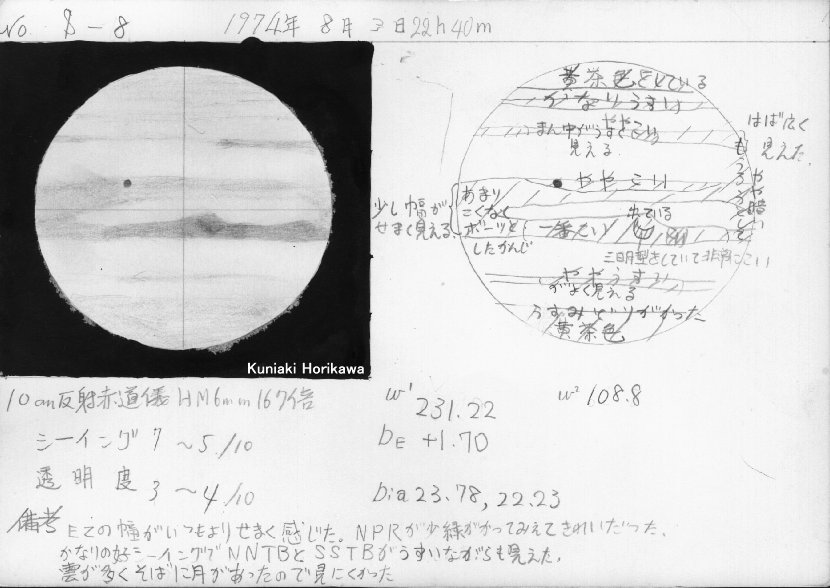 No. 8-8 1974年 8月 3日 22h 40m
黄茶色をしている
かなりうすい
まん中がうすく
見える
ややこい
はば広く
見えた
ややこい
やや暗い
あまり
こくなく
ボーッと
したかんじ
少し幅が
せまく見える
出ている
一番こい
三日月型をしていて非常にこい
ややうすい
がよく見える
うすみどりがかった
黄茶色
Kuniaki Horikawa
10cm反射赤道儀 HM6mm 167倍
シーイング 7 ~5/10
透明度 3 ~4/10
w¹ 231.22
w² 108.8
bE +1.70
dia 23.78, 22.23
備考 EZの幅がいつもよりせまく感じた。NPRが少緑がかってみえてきれいだった。
かなりの好シーイングでNNTBとSSTBがうすいながらも見えた。
雲が多くそばに月があったので見にくかった